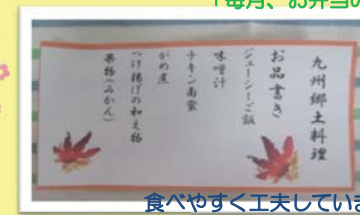 「毎月、お弁当の
九州郷土料理
お品書き
ジューシーご飯
味噌汁
チキン南蛮
がめ煮
つけ揚げの和え物
果物(みかん)
食べやすく工夫していま